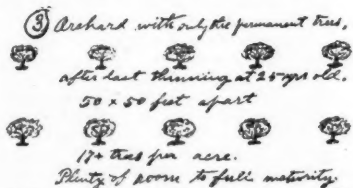 ③ Orchard with only the permanent trees,
after last thinning at 25 yrs old.
50 x 50 feet apart
17+ trees per acre.
Plenty of room to full maturity.